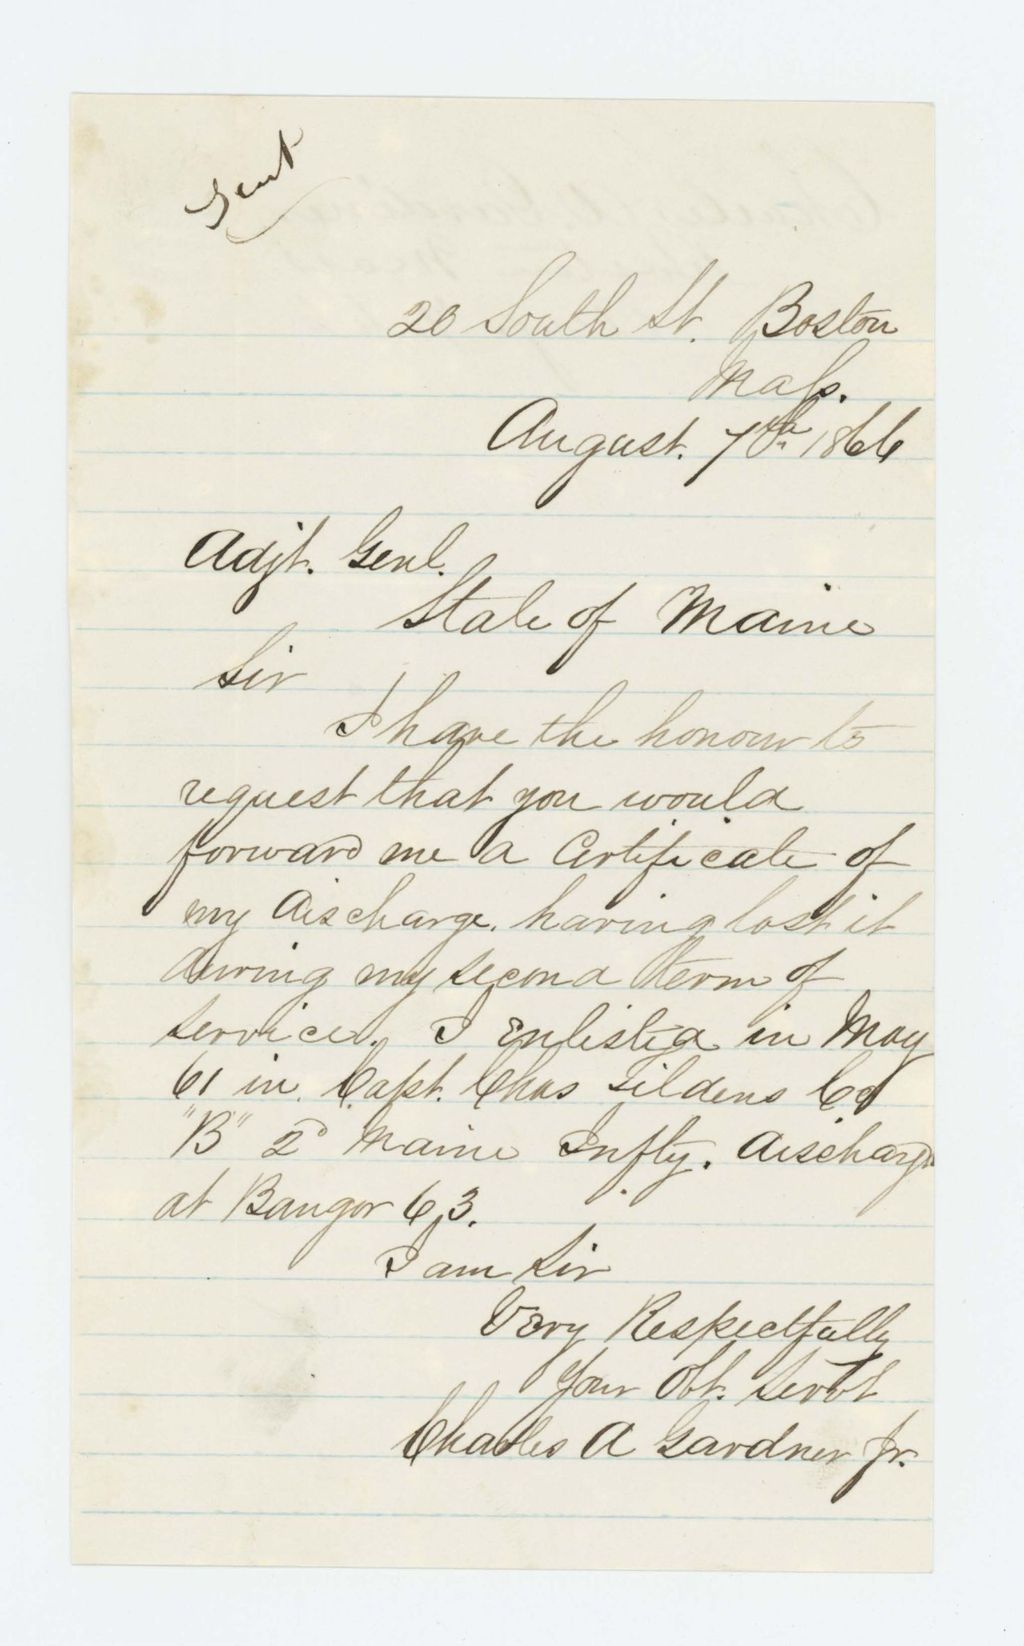 Sent
20 South St. Boston
Mass.
August. 7th 1866
Adjt. Genl.
State of Maine
Sir
I have the honour to
request that you would
forward me a Certificate of
my discharge. having lost it
during my second term of
service. I Enlisted in May
61 in. Capt. Chas Tildens Co
"B" 2d Maine Infty. discharged
at Bangor 63.
I am Sir
Very Respectfully
Your Obt. Servt
Charles A Gardner Jr.